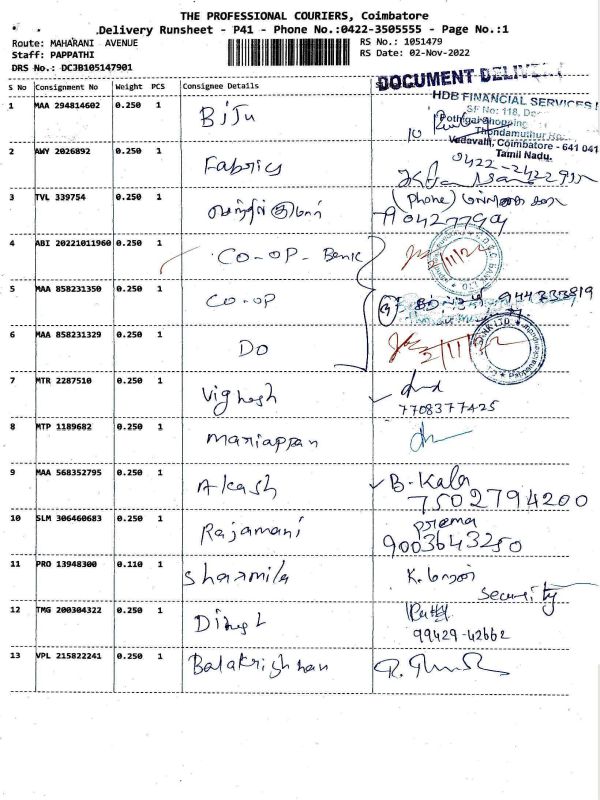 THE PROFESSIONAL COURIERS, Coimbatore
Delivery Runsheet - P41 - Phone No.:0422-3505555 - Page No.:1
Route: MAHARANI AVENUE
Staff: PAPPATHI
DRS No.: DCJB105147901
RS No.: 1051479
RS Date: 02-Nov-2022
DOCUMENT DELIVERY
S No Consignment No Weight PCS Consignee Details
HDB FINANCIAL SERVICES
SF No: 118,
Pothigai Shopping
Thondamuthur
Vadavalli, Coimbatore - 641 041
Tamil Nadu.
0422-2422
1 MAA 294814602 0.250 1 Biju 10
2 AWY 2026892 0.250 1 Fabrics
3 TVL 339754 0.250 1 (Phone)
4 ABI 20221011960 0.250 1 CO-OP-Bank
5 MAA 858231350 0.250 1 CO-OP
6 MAA 858231329 0.250 1 DO 2/11/22
7 MTR 2287510 0.250 1 Vighesh
7708377425
8 MTP 1189682 0.250 1 Mariappan
9 MAA 568352795 0.250 1 Akash B. Kala
7502794200
10 SLM 306460683 0.250 1 Rajamani Prema
9003643250
11 PRO 13948300 0.110 1 Sharmila
Security
12 TMG 200304322 0.250 1
99429-42662
13 VPL 215822241 0.250 1 Balakrishnan